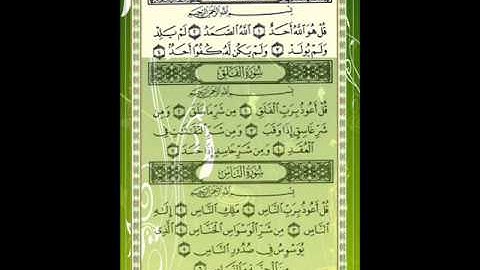 بسم الله الرحمن الرحيم
قُلْ هُوَ ٱللَّهُ أَحَدٌ ١ ٱللَّهُ ٱلصَّمَدُ ٢ لَمْ يَلِدْ
وَلَمْ يُولَدْ ٣ وَلَمْ يَكُن لَّهُ كُفُوًا أَحَدٌ ٤
سُورَةُ الْفَلَقِ
بسم الله الرحمن الرحيم
قُلْ أَعُوذُ بِرَبِّ ٱلْفَلَقِ ١ مِن شَرِّ مَا خَلَقَ ٢ وَمِن
شَرِّ غَاسِقٍ إِذَا وَقَبَ ٣ وَمِن شَرِّ ٱلنَّفَّٰثَٰتِ فِى
ٱلْعُقَدِ ٤ وَمِن شَرِّ حَاسِدٍ إِذَا حَسَدَ ٥
سُورَةُ النَّاسِ
بسم الله الرحمن الرحيم
قُلْ أَعُوذُ بِرَبِّ ٱلنَّاسِ ١ مَلِكِ ٱلنَّاسِ ٢ إِلَٰهِ
ٱلنَّاسِ ٣ مِن شَرِّ ٱلْوَسْوَاسِ ٱلْخَنَّاسِ ٤ ٱلَّذِى
يُوَسْوِسُ فِى صُدُورِ ٱلنَّاسِ ٥
مِنَ ٱلْجِنَّةِ وَٱلنَّاسِ ٦